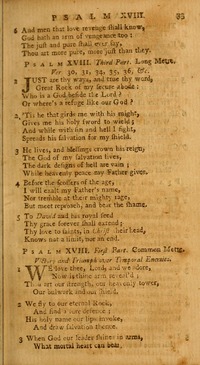 PSALM XVIII. 83
6 And men that love revenge shall know,
God hath an arm of vengeance too:
The just and pure shall ever say,
Thou art more pure, more just than they.
PSALM XVIII. Third Part. Long Metre.
Ver. 30, 31, 34, 35, 46, &c.
1 JUST are thy ways, and true thy word,
Great Rock of my secure abode:
Who is a God beside the Lord?
Or where's a refuge like our God?
2 'Tis he that girds me with his might,
Gives me his holy sword to wield;
And while with sin and hell I fight,
Spreads his salvation for my shield.
3 He lives, and blessings crown his reign;
The God of my salvation lives,
The dark designs of hell are vain;
While heavenly peace my Father gives.
4 Before the scoffers of the age,
I will exalt my Father's name,
Nor tremble at their mighty rage,
But meet reproach, and bear the shame.
5 To David and his royal seed
Thy grace forever shall extend;
Thy love to saints, in Christ their head,
Knows not a limit, nor an end.
PSALM XVIII. First Part. Common Metre.
Victory and Triumph over Temporal Enemies.
1 WE love thee, Lord, and we adore,
Now is thine arm reveal'd;
Thou art our strength, our heavenly tower,
Our bulwark and our shield.
2 We fly to our eternal Rock,
And find a sure defence;
His holy name our lips invoke,
And draw salvation thence.
3 When God our leader shines in arms,
What mortal heart can bear